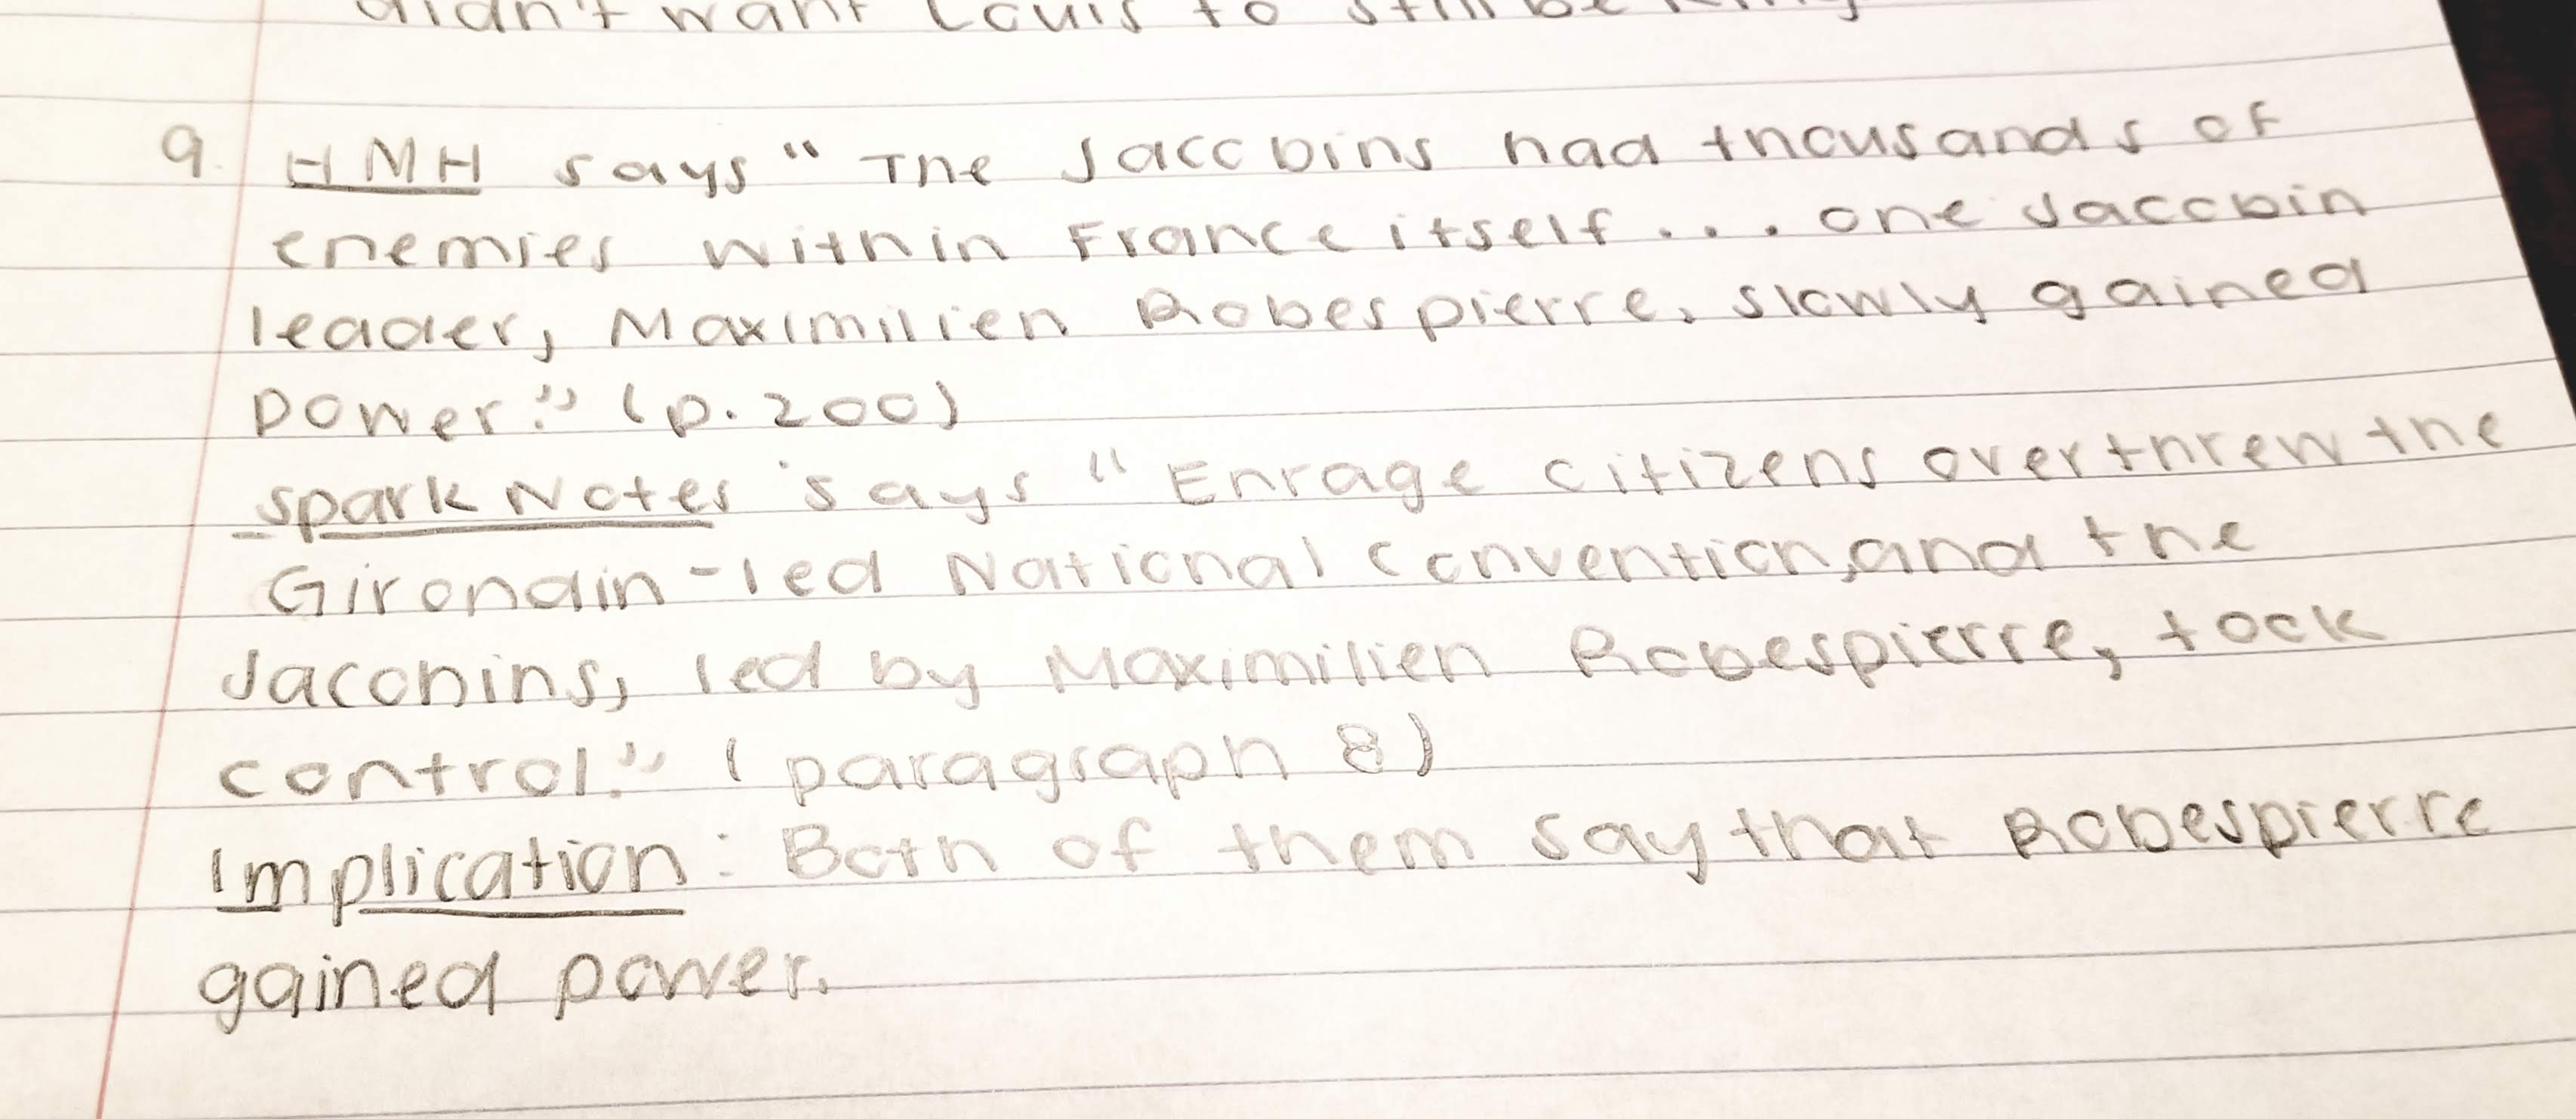 didn't want Louis to still be king
9. HMH says "The Jaccobins had thousands of
enemies within France itself... one Jaccobin
leader, Maximilien Robespierre, slowly gained
power." (p.200)
SparkNotes says "Enrage citizens overthrew the
Girondin-led National Convention, and the
Jacobins, led by Maximilien Robespierre, took
control." (paragraph 8)
Implication: Both of them say that Robespierre
gained power.